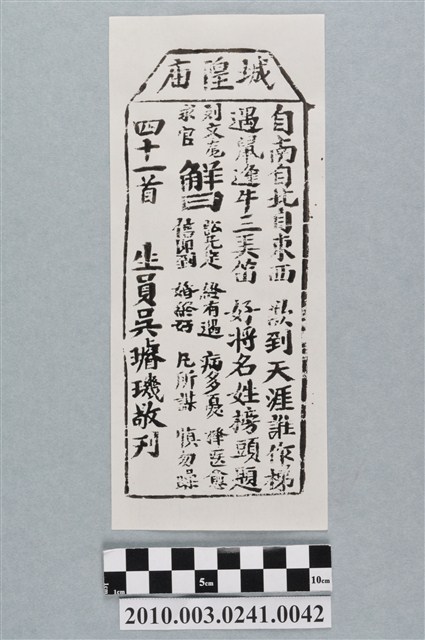 城隍庙
自南自北自東西 欲到天涯誰作梯
遇鼠逢牛三弄笛 好將名姓榜頭題
解曰
終有遇 病多憂 擇医愈
求官 信須到 婚終好 凡所謀 慎勿躁
四十一首 生員吳璿璣敬刊
5cm
10cm
1cm
2010.003.0241.0042